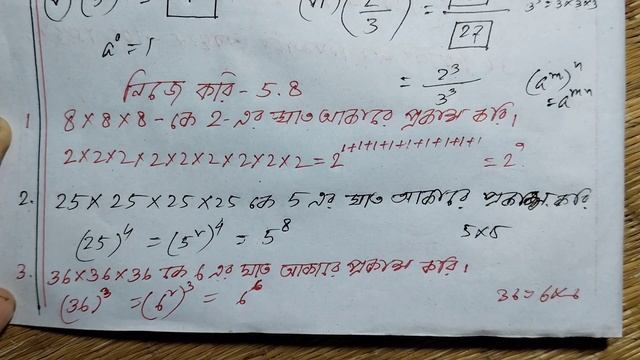 a⁰ = 1
2/3
27
3³ = 3×3×3
= 2³/3³
(aᵐ)ⁿ = aᵐⁿ
নিজে করি - 5.8
1 8×8×8 - কে 2-এর ঘাত আকারে প্রকাশ করি।
2×2×2×2×2×2×2×2×2 = 2¹⁺¹⁺¹⁺¹⁺¹⁺¹⁺¹⁺¹⁺¹ = 2⁹
2. 25×25×25×25 কে 5 এর ঘাত আকারে প্রকাশ করি
(25)⁴ = (5²)⁴ = 5⁸ 5×5
3. 36×36×36 কে 6 এর ঘাত আকারে প্রকাশ করি।
(36)³ = (6²)³ = 6⁶ 36 = 6×6